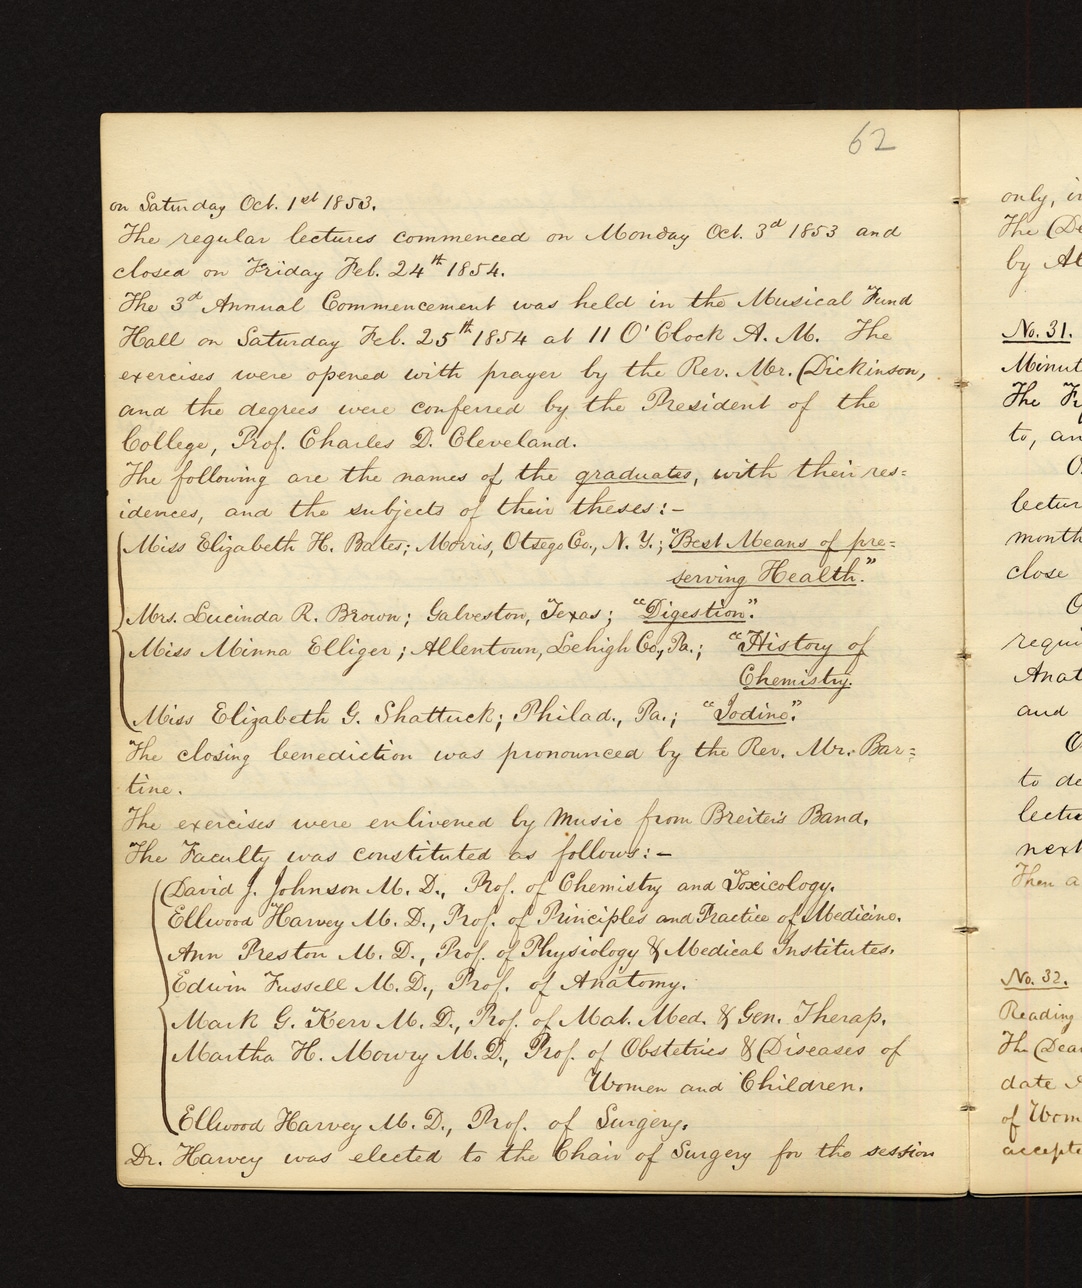 62
on Saturday Oct. 1st 1853.
The regular lectures commenced on Monday Oct. 3d 1853 and
closed on Friday Feb. 24th 1854.
The 3d Annual Commencement was held in the Musical Fund
Hall on Saturday Feb. 25th 1854 at 11 O'Clock A. M. The
exercises were opened with prayer by the Rev. Mr. Dickinson,
and the degrees were conferred by the President of the
College, Prof. Charles D. Cleveland.
The following are the names of the graduates, with their res=
idences, and the subjects of their theses:-
Miss Elizabeth H. Bates; Morris, Otsego Co., N. Y.; "Best Means of pre=
serving Health."
Mrs. Lucinda R. Brown; Galveston, Texas; "Digestion".
Miss Minna Elliger; Allentown, Lehigh Co., Pa.; "History of
Chemistry.
Miss Elizabeth G. Shattuck; Philad., Pa.; "Iodine".
The closing benediction was pronounced by the Rev. Mr. Bar=
tine.
The exercises were enlivened by Music from Breiter's Band.
The Faculty was constituted as follows:-
David J. Johnson M. D., Prof. of Chemistry and Toxicology.
Ellwood Harvey M. D., Prof. of Principles and Practice of Medicine.
Ann Preston M. D., Prof. of Physiology & Medical Institutes.
Edwin Fussell M. D., Prof. of Anatomy.
Mark G. Kerr M. D., Prof. of Mat. Med. & Gen. Therap.
Martha H. Mowry M. D., Prof. of Obstetrics & Diseases of
Women and Children.
Ellwood Harvey M. D., Prof. of Surgery.
Dr. Harvey was elected to the Chair of Surgery for the session
only, in
The De
by Al
No. 31.
Minut
The Fr
to, an
lectur
month
close
requi
Anat
and
to de
lectu
next
Then a
No. 32.
Reading
The Dean
date
of Wom
accepte